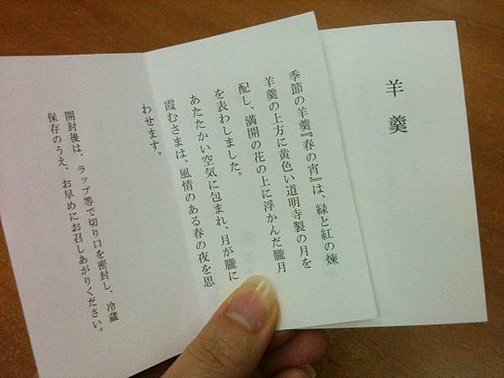 羊羹
季節の羊羹『春の宵』は、緑と紅の煉
羊羹の上方に黄色い道明寺製の月を
配し、満開の花の上に浮かんだ朧月
を表わしました。
あたたかい空気に包まれ、月が朧に
霞むさまは、風情のある春の夜を思
わせます。
開封後は、ラップ等で切り口を密封し、冷蔵
保存のうえ、お早めにお召しあがりください。